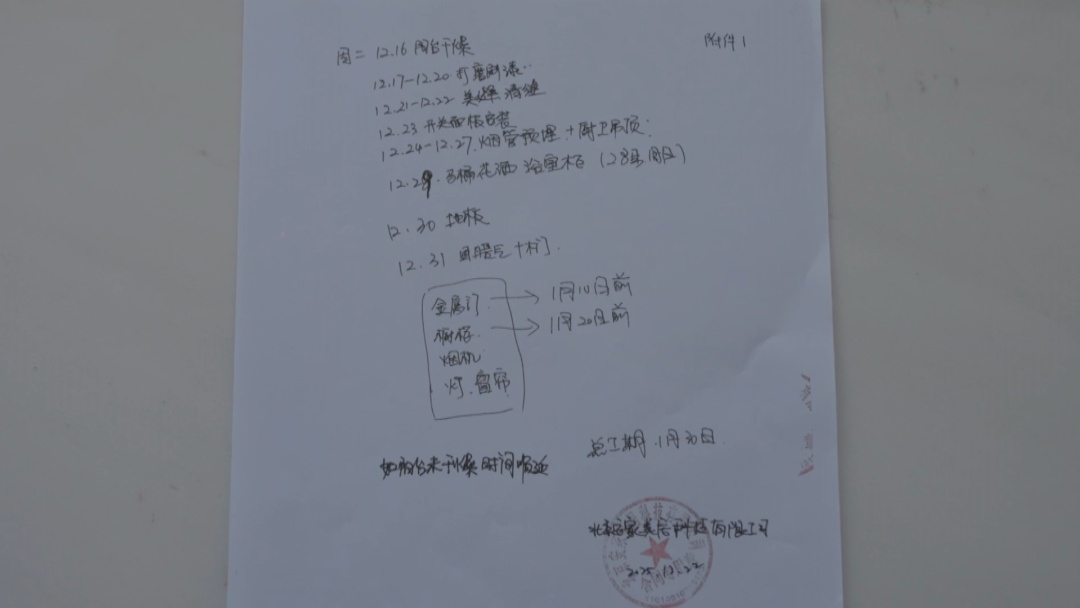 附件1
周二 12.16 阳台干燥
12.17-12.20 打磨刷漆..
12.21-12.22 美缝 清缝
12.23 开关面板安装
12.24-12.27. 烟管预埋 + 厨卫吊顶.
12.29. 马桶花洒 浴室柜 (28号周日)
12.30 地板
12.31 + 木门.
金属门. → 1月10日前
橱柜. → 1月20日前
烟机
灯. 窗帘
总工期. 1月30日.
如阳台未干燥时间顺延
北京 科技有限公司
2025.12.22